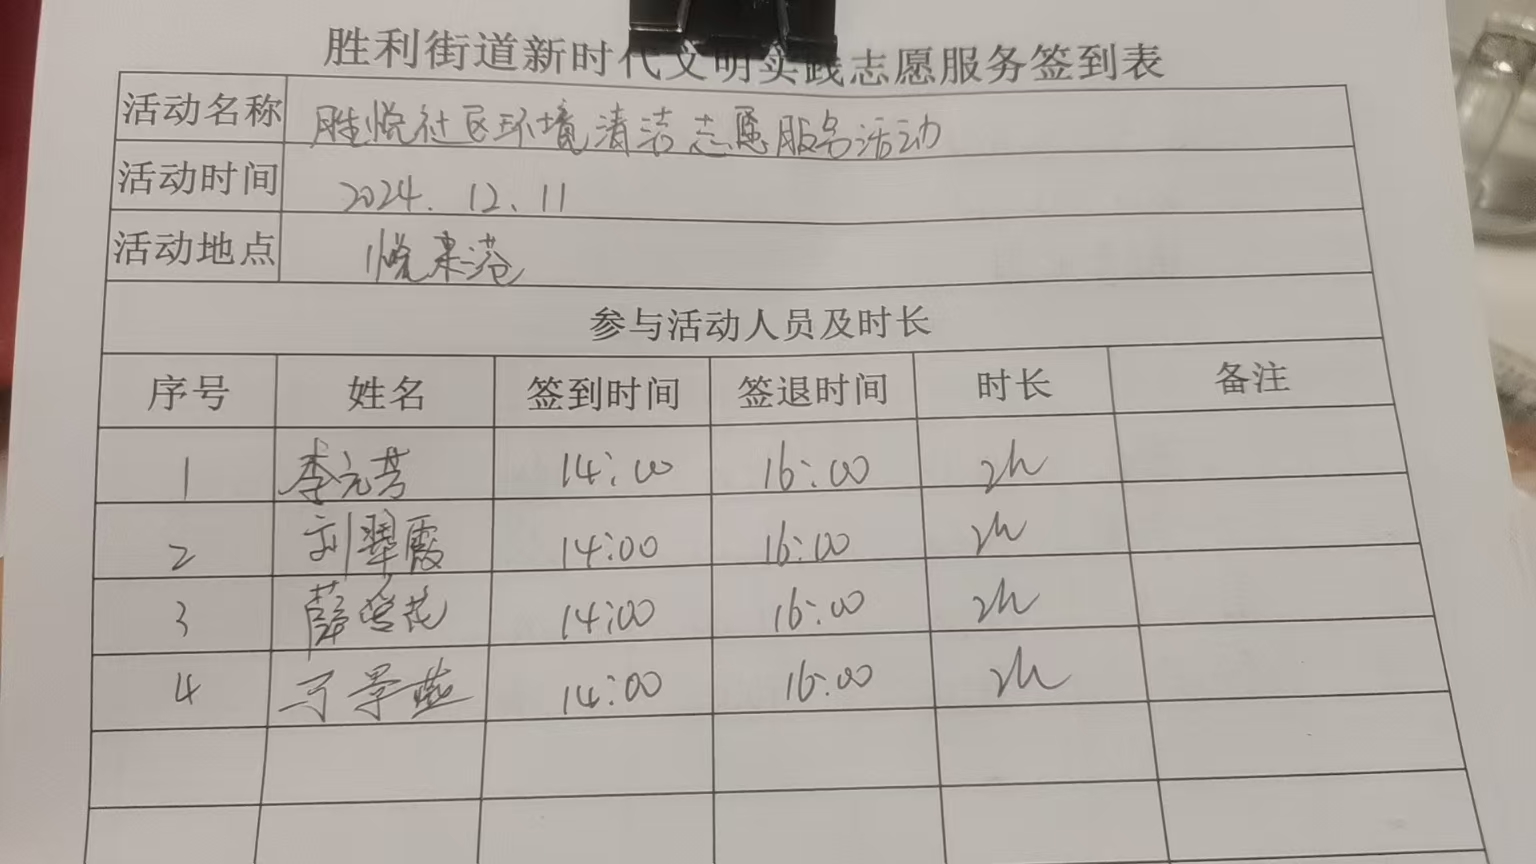 胜利街道新时代文明实践志愿服务签到表
活动名称 胜悦社区环境清洁志愿服务活动
活动时间 2024.12.11
活动地点 悦来港
参与活动人员及时长
序号 姓名 签到时间 签退时间 时长 备注
1 李元芳 14:00 16:00 2h
2 刘翠霞 14:00 16:00 2h
3 薛雪花 14:00 16:00 2h
4 14:00 16:00 2h